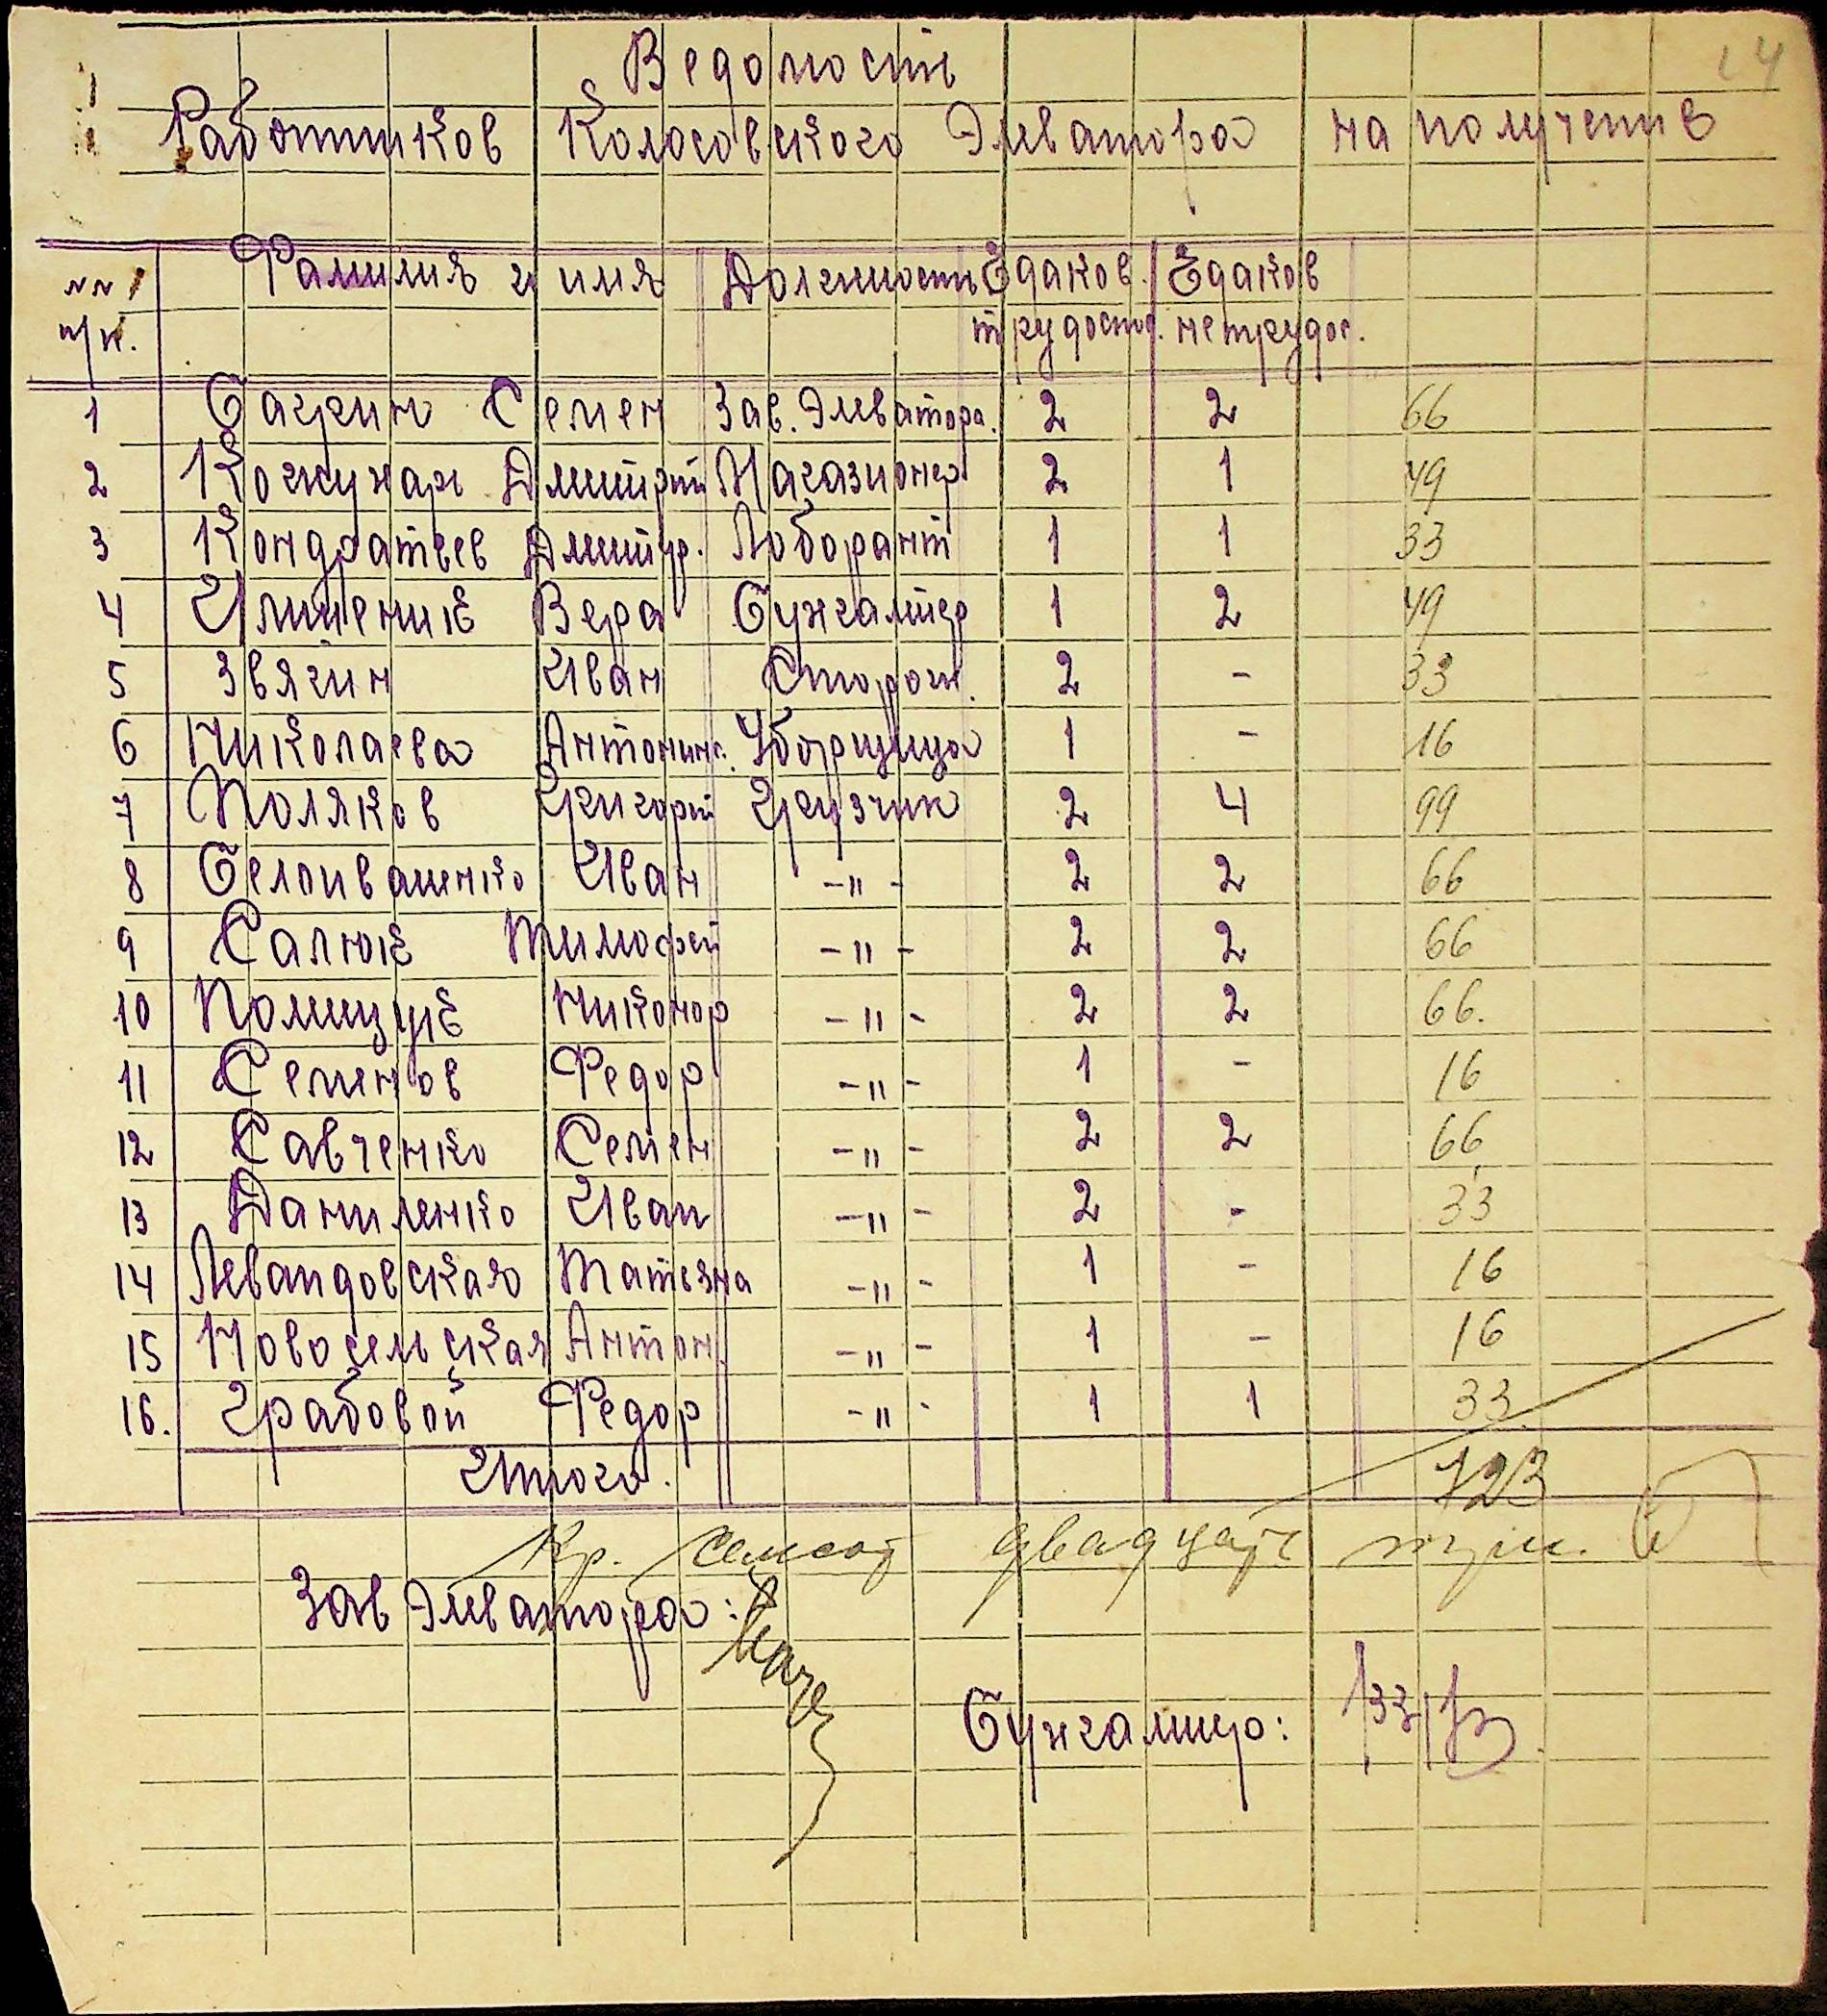 24
Ведомость
Работников Колосовского Элеватора на получение
NN п/п. Фамилия и имя Должность Едаков трудосп. Едаков нетрудос.
1 Бацкин Семен Зав. Элеватора. 2 2 66
2 Кожухарь Дмитрий Магазионер 2 1 49
3 Кондратьев Дмитр. Лоборант 1 1 33
4 Вера Бухгалтер 1 2 49
5 Звягин Иван Сторож. 2 - 33
6 Николаева Антонин. Уборщица 1 - 16
7 Поляков Григорий Грузчик 2 4 99
8 Белоиваненко Иван -"- 2 2 66
9 Салюк Тимофей -"- 2 2 66
10 Полищук Никонор -"- 2 2 66.
11 Семенов Федор -"- 1 - 16
12 Савченко Семен -"- 2 2 66
13 Даниленко Иван -"- 2 - 33
14 Левандовская Татьяна -"- 1 - 16
15 Новосельская Антон. -"- 1 - 16
16. Грабовой Федор -"- 1 1 33
Итого. 723
Кр. семсот двадцать три.
Зав Элеватора:
Бухгалтер: